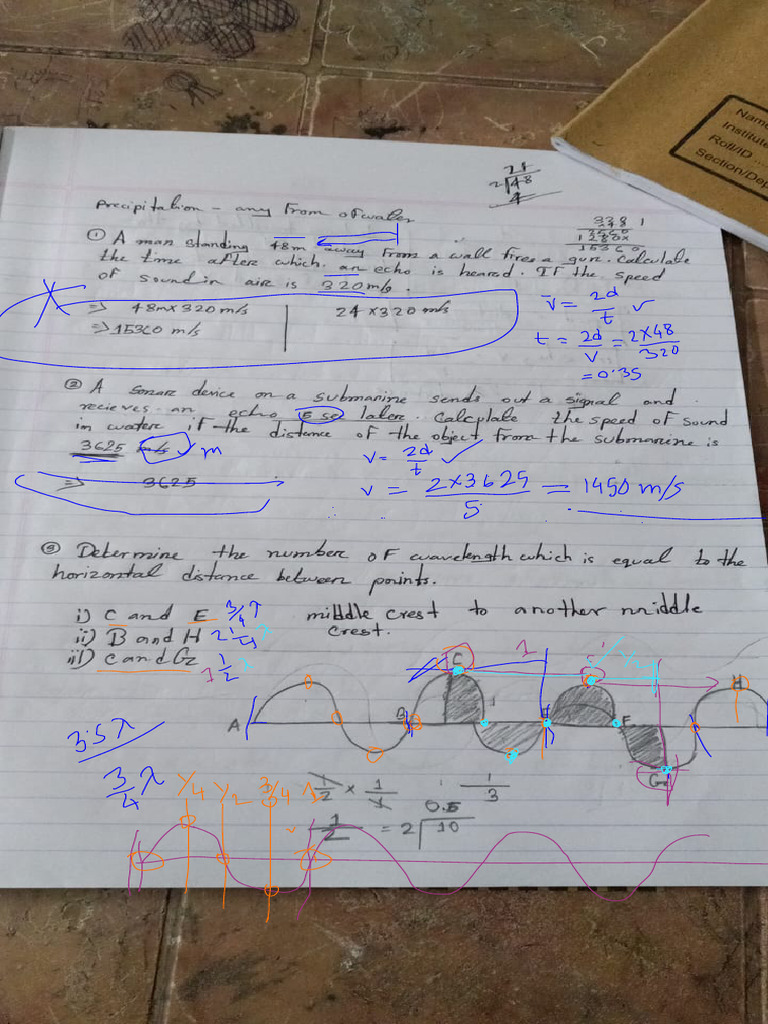 Name
Institute
Roll/ID
Section/Dep
Precipitation - any From of water
24
2 48
4
① A man standing 48m away From a wall fires a gun. Calculate
the time after which an echo is heared. If the speed
of sound in air is 320 m/s.
⇒ 48m x 320 m/s
⇒ 15360 m/s
24 x 320 m/s
v = 2d/t ✓
t = 2d/v = 2x48/320
= 0.3s
② A sonar device on a submarine sends out a signal and
recieves an echo 5 se later. Calculate the speed of sound
in water if the distance of the object from the submarine is
3625 m/s m
v = 2d/t ✓
⇒ 3625
v = 2x3625/5 = 1450 m/s
③ Determine the number of wavelength which is equal to the
horizontal distance between points.
i) C and E 3/4 λ
ii) B and H 2 1/4 λ
iii) C and G 1 1/2 λ
middle crest to another middle
crest.
A
B
C
1
F
G
H
3.5λ
3/4 λ
1/4 1/2 3/4 1
1/2 x 1/1
1/3
1/2 = 2 10
0.5